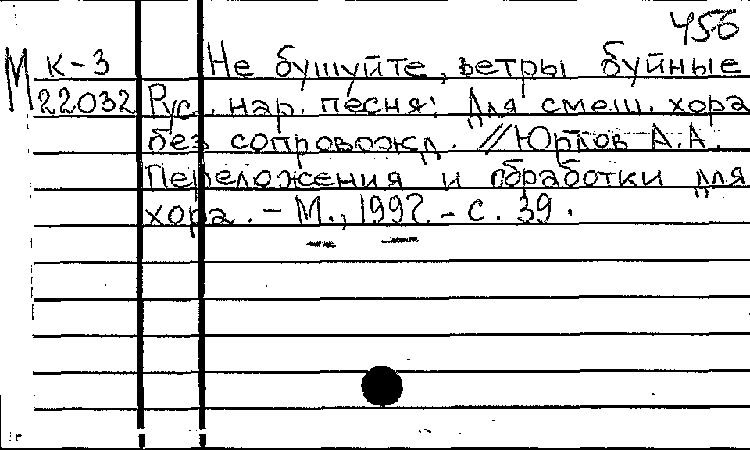 456
М К-3 Не бушуйте, ветры буйные
22032 Рус. нар. песня: Для смеш. хора
без сопровожд. // Юрлов А.А.
Переложения и обработки для
хора. - М., 1992. - с. 39.